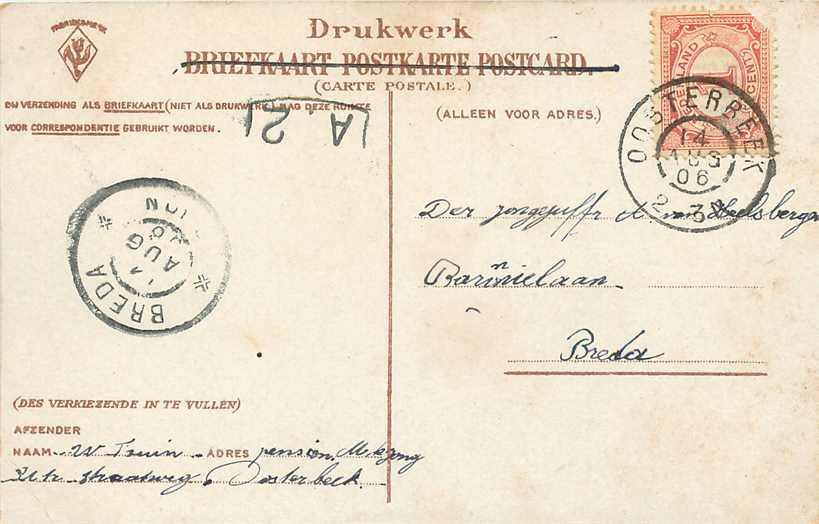 FABRIEKSMERK
Drukwerk
BRIEFKAART POSTKARTE POSTCARD.
(CARTE POSTALE.)
BIJ VERZENDING ALS BRIEFKAART (NIET ALS DRUKWERK) MAG DEZE RUIMTE
VOOR CORRESPONDENTIE GEBRUIKT WORDEN.
(ALLEEN VOOR ADRES.)
A 2
NEDERLAND
1
CENT
OOSTERBEEK
14
AUG
06
BREDA
AUG
06
Der jongejuffr A. van
Breda
(DES VERKIEZENDE IN TE VULLEN)
AFZENDER
NAAM W Truin ADRES pension
Utr. straatweg. Oosterbeek